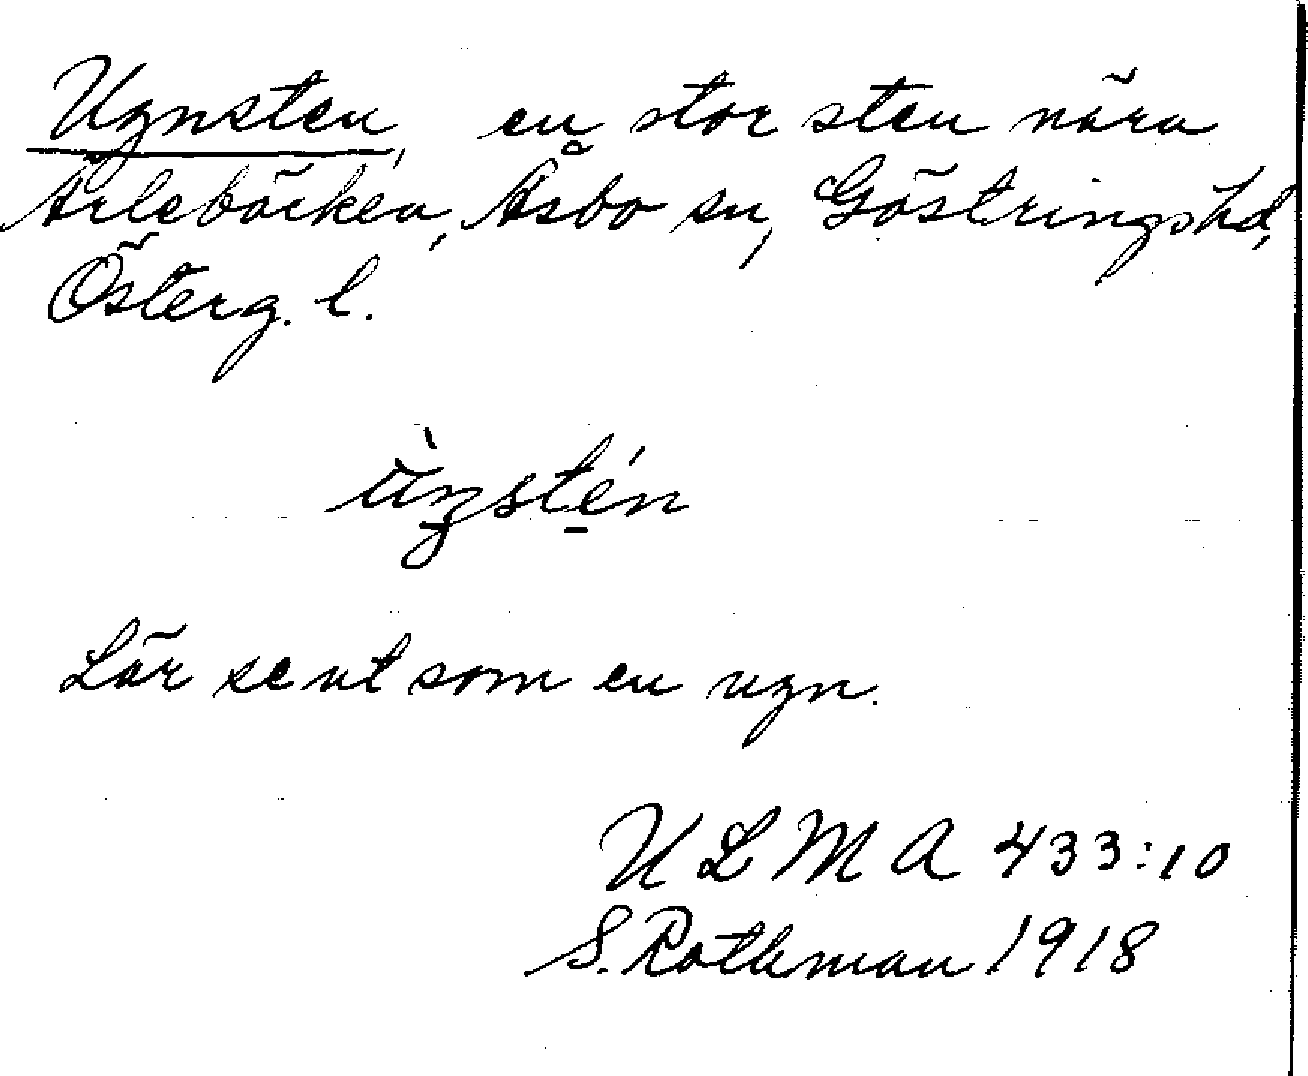 Ugnsten, en stor sten nära
Ärlebäcken, Åsbo sn, Göstringshd,
Österg. l.
ùgstén
Lär se ut som en ugn.
ULMA 433:10
S. Rothman 1918